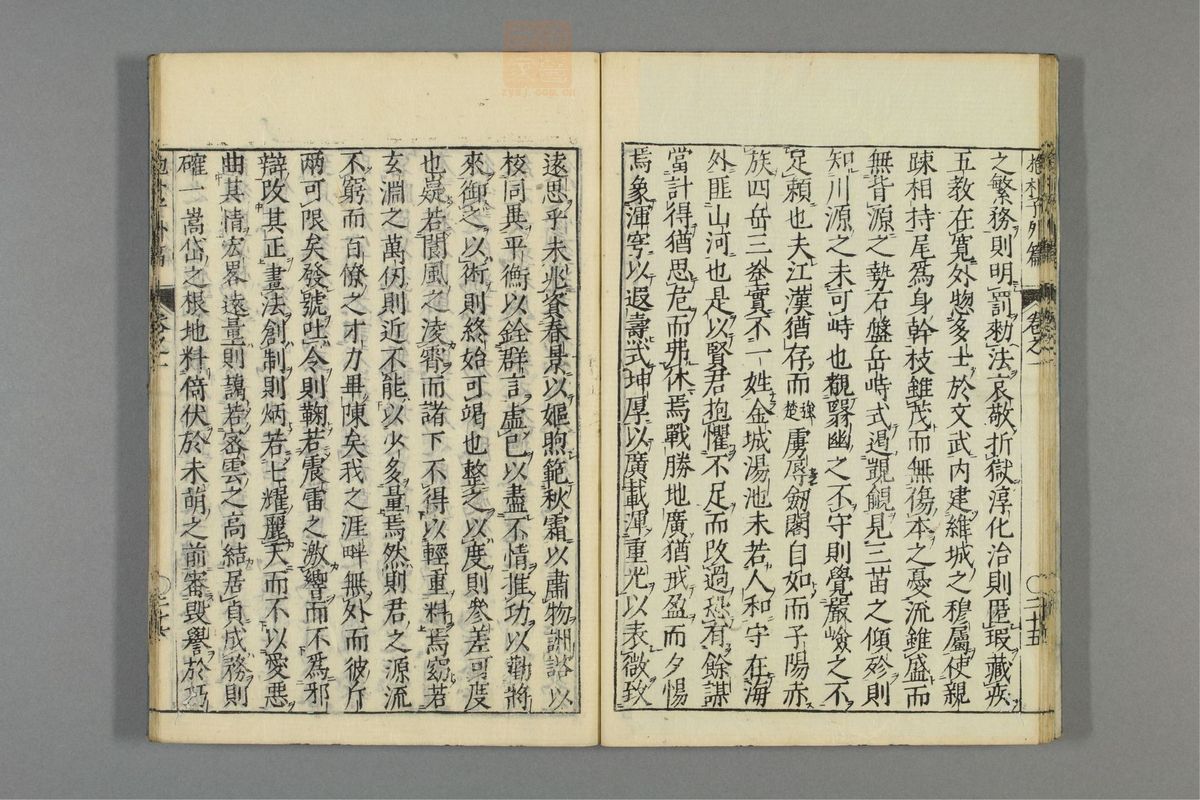 抱朴子外篇 卷之一 〇二十五
之繁務則明罰勑法哀敬折獄淳化治則匿瑕藏疾
五教在寛外惣多士於文武内建維城之穆屬使親
踈相持尾爲身幹枝雖茂而無傷本之憂流雖盛而
無背源之勢石盤岳峙式遏覬覦見三苗之傾殄則
知川源之未可恃也覩翳幽之不守則覺嚴嶮之不
足賴也夫江漢猶存而強楚虜辱劔閣自如而子陽赤
族四岳三塗實不一姓金城湯池未若人和守在海
外匪山河也是以賢君抱懼不足而改過恐有餘謀
當計得猶思危而弗休焉戰勝地廣猶戒盈而夕惕
焉象渾穹以遐壽式坤厚以廣載渾重光以表微致
遠思乎未兆資春景以嫗煦範秋霜以肅物詶諮以
校同異平衡以銓群言虛已以盡不情推功以勸將
來御之以術則終始可竭也整之以度則參差可度
也嶷若閬風之凌霄而諸下不得以輕重料焉窈若
玄淵之萬仭則近不能以少多量焉然則君之源流
不窮而百僚之才力畢陳矣我之涯畔無外而彼斤
兩可限矣發號吐令則鞫若震雷之激響而不爲邪
辯改其正畫法創制則炳若七耀麗天而不以愛惡
曲其情宏畧遠量則藹若密雲之高結居貞成務則
確一嵩岱之根地料倚伏於未萌之前審毁譽於巧
卷之一
zysj.com.cn